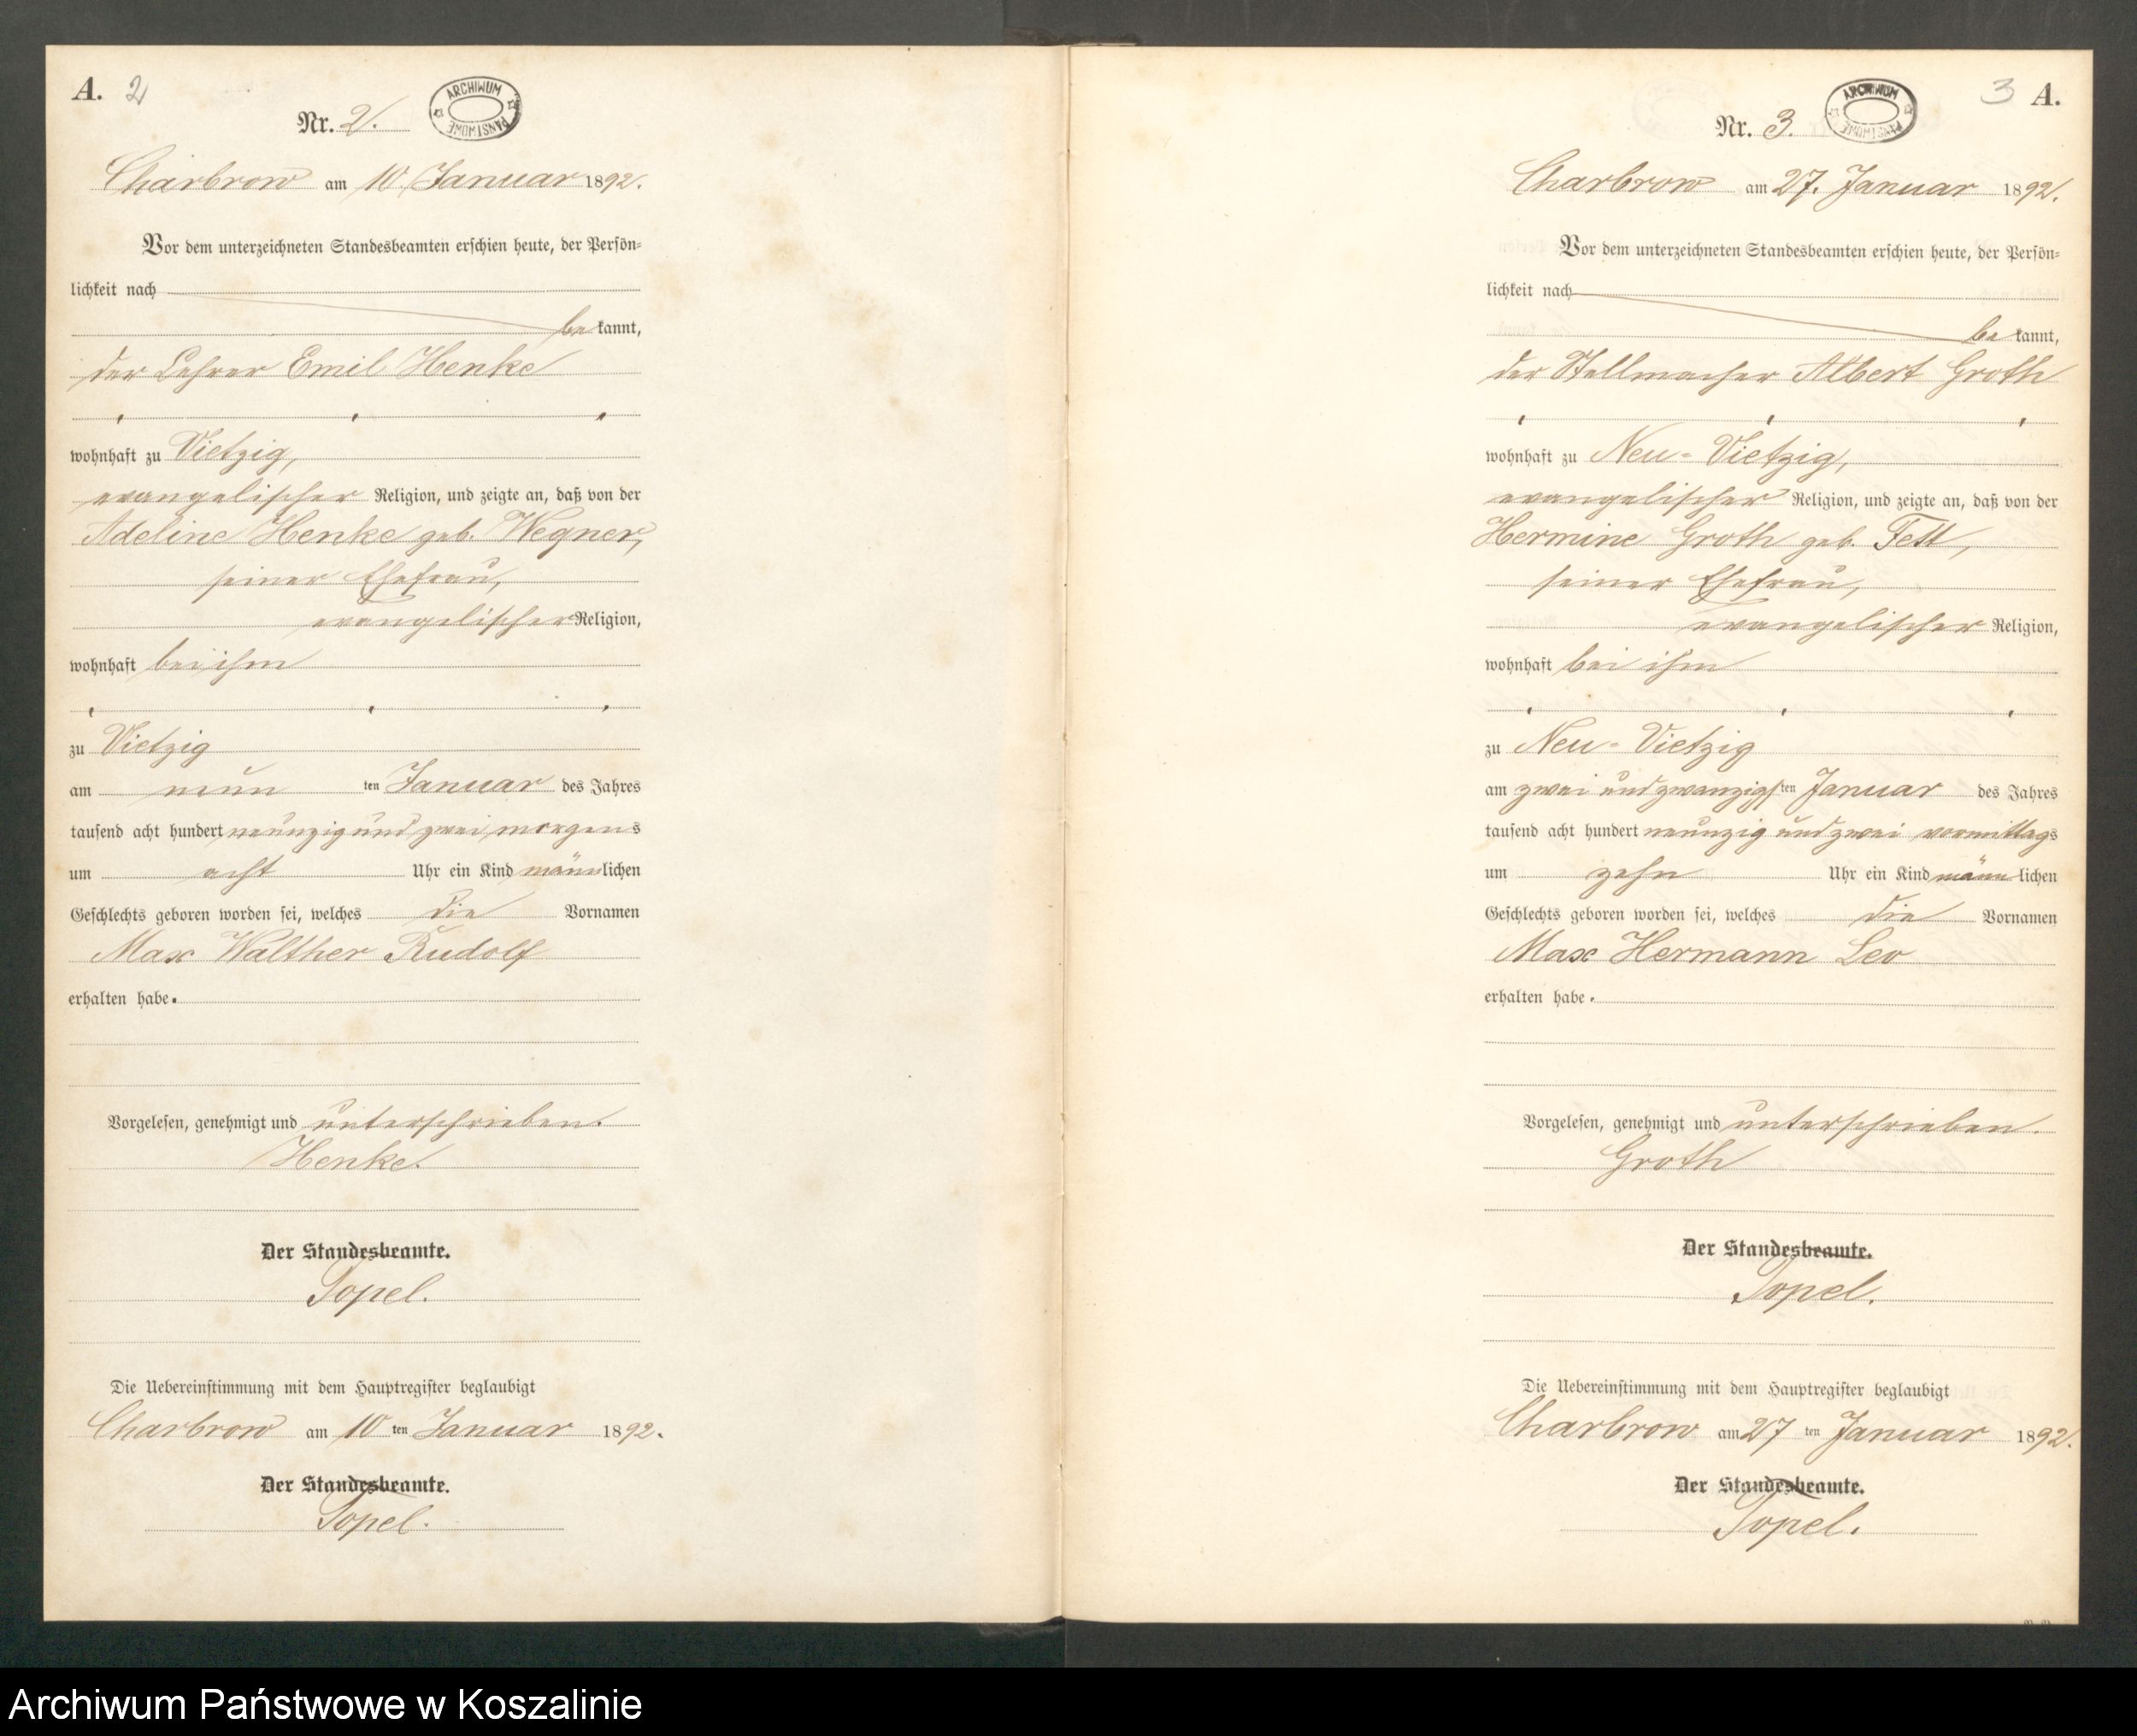 A. 2
ARCHIWUM PAŃSTWOWE
Nr. 2.
Charbrow am 10. Januar 1892.
Vor dem unterzeichneten Standesbeamten erschien heute, der Persön=
lichkeit nach
be kannt,
der Lehrer Emil Henke
wohnhaft zu Vietzig,
evangelischer Religion, und zeigte an, daß von der
Adeline Henke geb. Wegner,
seiner Ehefrau,
evangelischer Religion,
wohnhaft bei ihm
zu Vietzig
am neun ten Januar des Jahres
tausend acht hundert neunzig und zwei morgens
um acht Uhr ein Kind männlichen
Geschlechts geboren worden sei, welches die Vornamen
Max Walther Rudolf
erhalten habe.
Vorgelesen, genehmigt und unterschrieben.
Henke.
Der Standesbeamte.
Topel.
Die Uebereinstimmung mit dem Hauptregister beglaubigt
Charbrow am 10 ten Januar 1892.
Der Standesbeamte.
Topel.
3 A.
ARCHIWUM PAŃSTWOWE
Nr. 3.
Charbrow am 27. Januar 1892.
Vor dem unterzeichneten Standesbeamten erschien heute, der Persön=
lichkeit nach
be kannt,
der Stellmacher Albert Groth
wohnhaft zu Neu-Vietzig,
evangelischer Religion, und zeigte an, daß von der
Hermine Groth geb. Tett,
seiner Ehefrau,
evangelischer Religion,
wohnhaft bei ihm
zu Neu-Vietzig
am zwei und zwanzigsten Januar des Jahres
tausend acht hundert neunzig und zwei vormittags
um zehn Uhr ein Kind männlichen
Geschlechts geboren worden sei, welches die Vornamen
Max Hermann Leo
erhalten habe.
Vorgelesen, genehmigt und unterschrieben.
Groth
Der Standesbeamte.
Topel.
Die Uebereinstimmung mit dem Hauptregister beglaubigt
Charbrow am 27 ten Januar 1892.
Der Standesbeamte.
Topel.
Archiwum Państwowe w Koszalinie